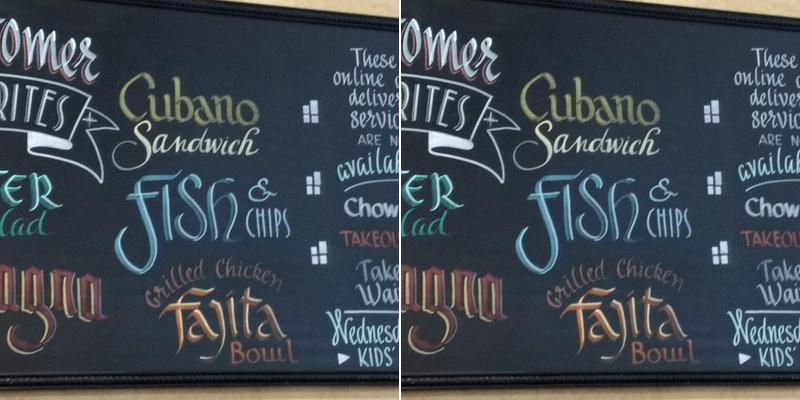 omer
RITES +
TER
lad
agna
Cubano
Sandwich
FISh &
CHIPS
Grilled Chicken
Fajita
Bowl
These
online
deliver
servic
ARE N
availab
Chow
TAKEOU
Take
Wai
Wednesd
KIDS'
omer
RITES +
TER
lad
agna
Cubano
Sandwich
FISh &
CHIPS
Grilled Chicken
Fajita
Bowl
These
online
deliver
servic
ARE N
availab
Chow
TAKEOU
Take
Wai
Wednesd
KIDS'